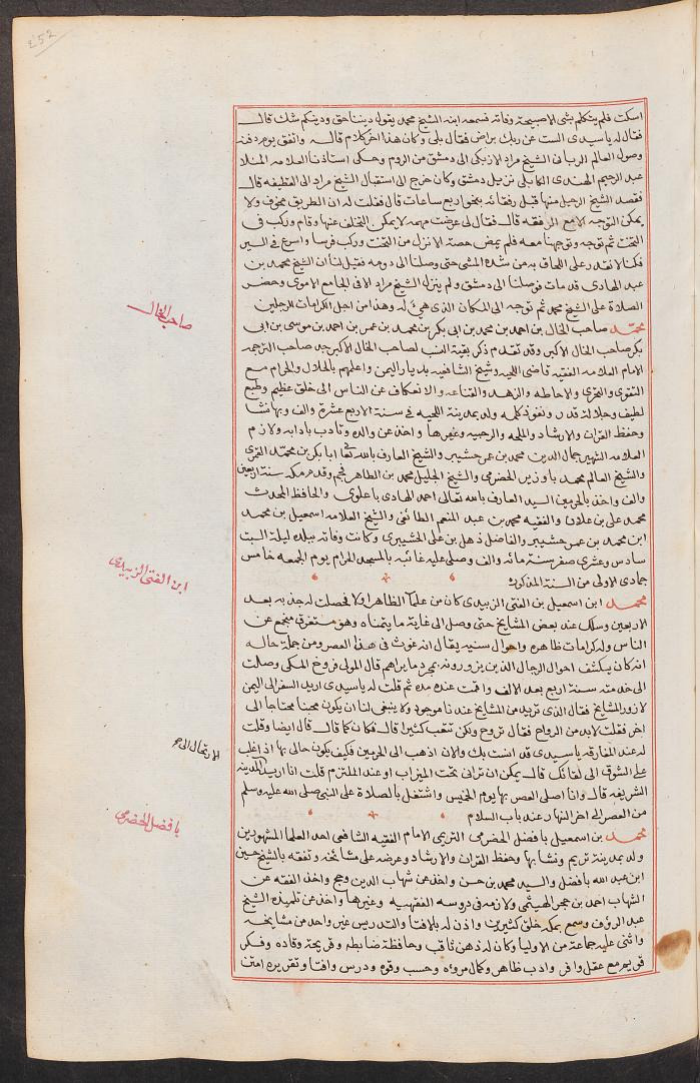 ٤٥٢
اسكت فلم يتكلم بشى الا صبيحة وفاته فسمعه ابنه الشيخ محمد يقول ديننا حق ودينكم شك قال
فقال له ياسيدى الست عن ربك براض فقال بلى وكان هذا اخر كلام قاله واتفق يوم دفنه
وصول العالم الربانى الشيخ مراد الازبكى الى دمشق من الروم وحكى استاذنا العلامه المنلا
عبد الرحيم الهندى الكابلى نزيل دمشق وكان خرج الى استقبال الشيخ مراد الى القطيفه قال
فقصد الشيخ الرحيل منها قبل رفقائه بنحو اربع ساعات قال فقلت له ان الطريق مخوف ولا
يمكن التوجه الا مع الرفقه قال فقال لى عرضت مهمه لا يمكن التخلف عنها وقام وركب فى
التخت ثم توجه وتوجهنا معه فلم يمض حصة الا نزل من التخت وركب فرسا واسرع فى السير
فكنا لا نقدر على اللحاق به من شدة المشى حتى وصلنا الى دومه فقيل لنا ان الشيخ محمد بن
عبد الهادى قد مات فوصلنا الى دمشق ولم ينزل الشيخ مراد الا فى الجامع الاموى وحضر
الصلاة على الشيخ محمد ثم توجه الى المكان الذى هيئ له وهذا من اجل الكرامات للرجلين
صاحب الخال
محمد صاحب الخال بن احمد بن محمد بن ابى بكر بن محمد بن عمر بن احمد بن موسى بن ابى
بكر صاحب الخال الاكبر وقد تقدم ذكر بقية النسب لصاحب الخال الاكبر جد صاحب الترجمه
الامام العلامه الفقيه قاضى اللحيه وشيخ الشافعيه بديار اليمن واعلمهم بالحلال والحرام مع
التقوى والتحرى والاحاطه والزهد والقناعه والانعكاف عن الناس الى خلق عظيم وطبع
لطيف وجلالة قدر ونفوذ كلمه ولد بمدينة اللحيه فى سنة الاربع عشرة والف وبها نشا
وحفظ القران والارشاد والملحه والرحبيه وغيرها واخذ عن والده وتادب بادابه ولازم
العلامة الشهير جمال الدين محمد بن عمر حشيبر والشيخ العارف بالله تعا ابا بكر بن محمد القرى
والشيخ العالم محمد باوزير الحضرمى والشيخ الجليل محمد بن الطاهر نجم وقدم مكه سنة اربعين
والف واخذ بالحرمين السيد العارف بالله تعالى احمد الهادى باعلوى والحافظ المحدث
محمد على بن علان والفقيه محمد بن عبد المنعم الطائفى والشيخ العلامه اسمعيل بن محمد
ابن محمد بن عمر حشيبر والفاضل ذهل بن على الحشيبرى وكانت وفاته ببلده ليلة السبت
سادس وعشرى صفر سنة مائه والف وصلى عليه غائبه بالمسجد الحرام يوم الجمعه خامس
جمادى الاولى من السنة المذكورة
ابن الفتى الزبيدى
محمد ابن اسمعيل بن الفتى الزبيدى كان من علما الظاهر اولا فحصلت له جذبه بعد
الاربعين وسلك عند بعض المشايخ حتى وصل الى غاية ما يتمناه وهو مستغرق منجمع عن
الناس وله كرامات ظاهره واحوال سنيه يقال انه غوث فى هذا العصر ومن جملة حاله
انه كان يكشف احوال الرجال الذين يزورونه بمجرد ما يراهم قال المولى فروخ المكى وصلت
الى خدمته سنة اربع بعد الالف واقمت عنده مدة ثم قلت له ياسيدى اريد السفر الى اليمن
لازور المشايخ فقال الذى تريد من المشايخ عندنا موجود ولا ينبغى لنا ان يكون محبنا محتاجا الى
اخر فقلت لابد من الرواح فقال تروح ولكن تتعب كثيرا قال فكان كما قال قال ايضا وقلت
له عند المفارقه ياسيدى قد انست بك والان اذهب الى الحرمين فكيف يكون حالى بها اذا غلب
على الشوق الى لقائك قال يمكن ان ترانى تحت الميزاب او عند الملتزم قلت انا اريد المدينه
الشريفه قال وانا اصلى العصر بها يوم الخميس واشتغل بالصلاة على النبى صلى الله عليه وسلم
من العصر الى اخر النهار عند باب السلام
بافضل الحضرمى
محمد بن اسمعيل بافضل الحضرمى التريمى الامام الفقيه الشافعى احد العلما المشهورين
ولد بمدينة تريم ونشا بها وحفظ القران والارشاد وعرضه على مشائخه وتفقه بالشيخ حسين
ابن عبد الله بافضل والسيد محمد بن حسن واخذ عن شهاب الدين وحج واخذ الفقه عن
الشهاب احمد بن حجر الهيثمى ولازمه فى دروسه الفقهيه وغيرها واخذ عن تلميذه الشيخ
عبد الرؤف وسمع بمكه خلق كثيرين واذن له بالافتا والتدريس غير واحد من مشايخه
واثنى عليه جماعة من الاوليا وكان له ذهن ثاقب وحافظة ضابطه وقريحة وقاده وفكر
قويم مع عقل وافر وادب ظاهر وكمال مروءه وحسب وقوم ودرس وافتا وتقريره امتن